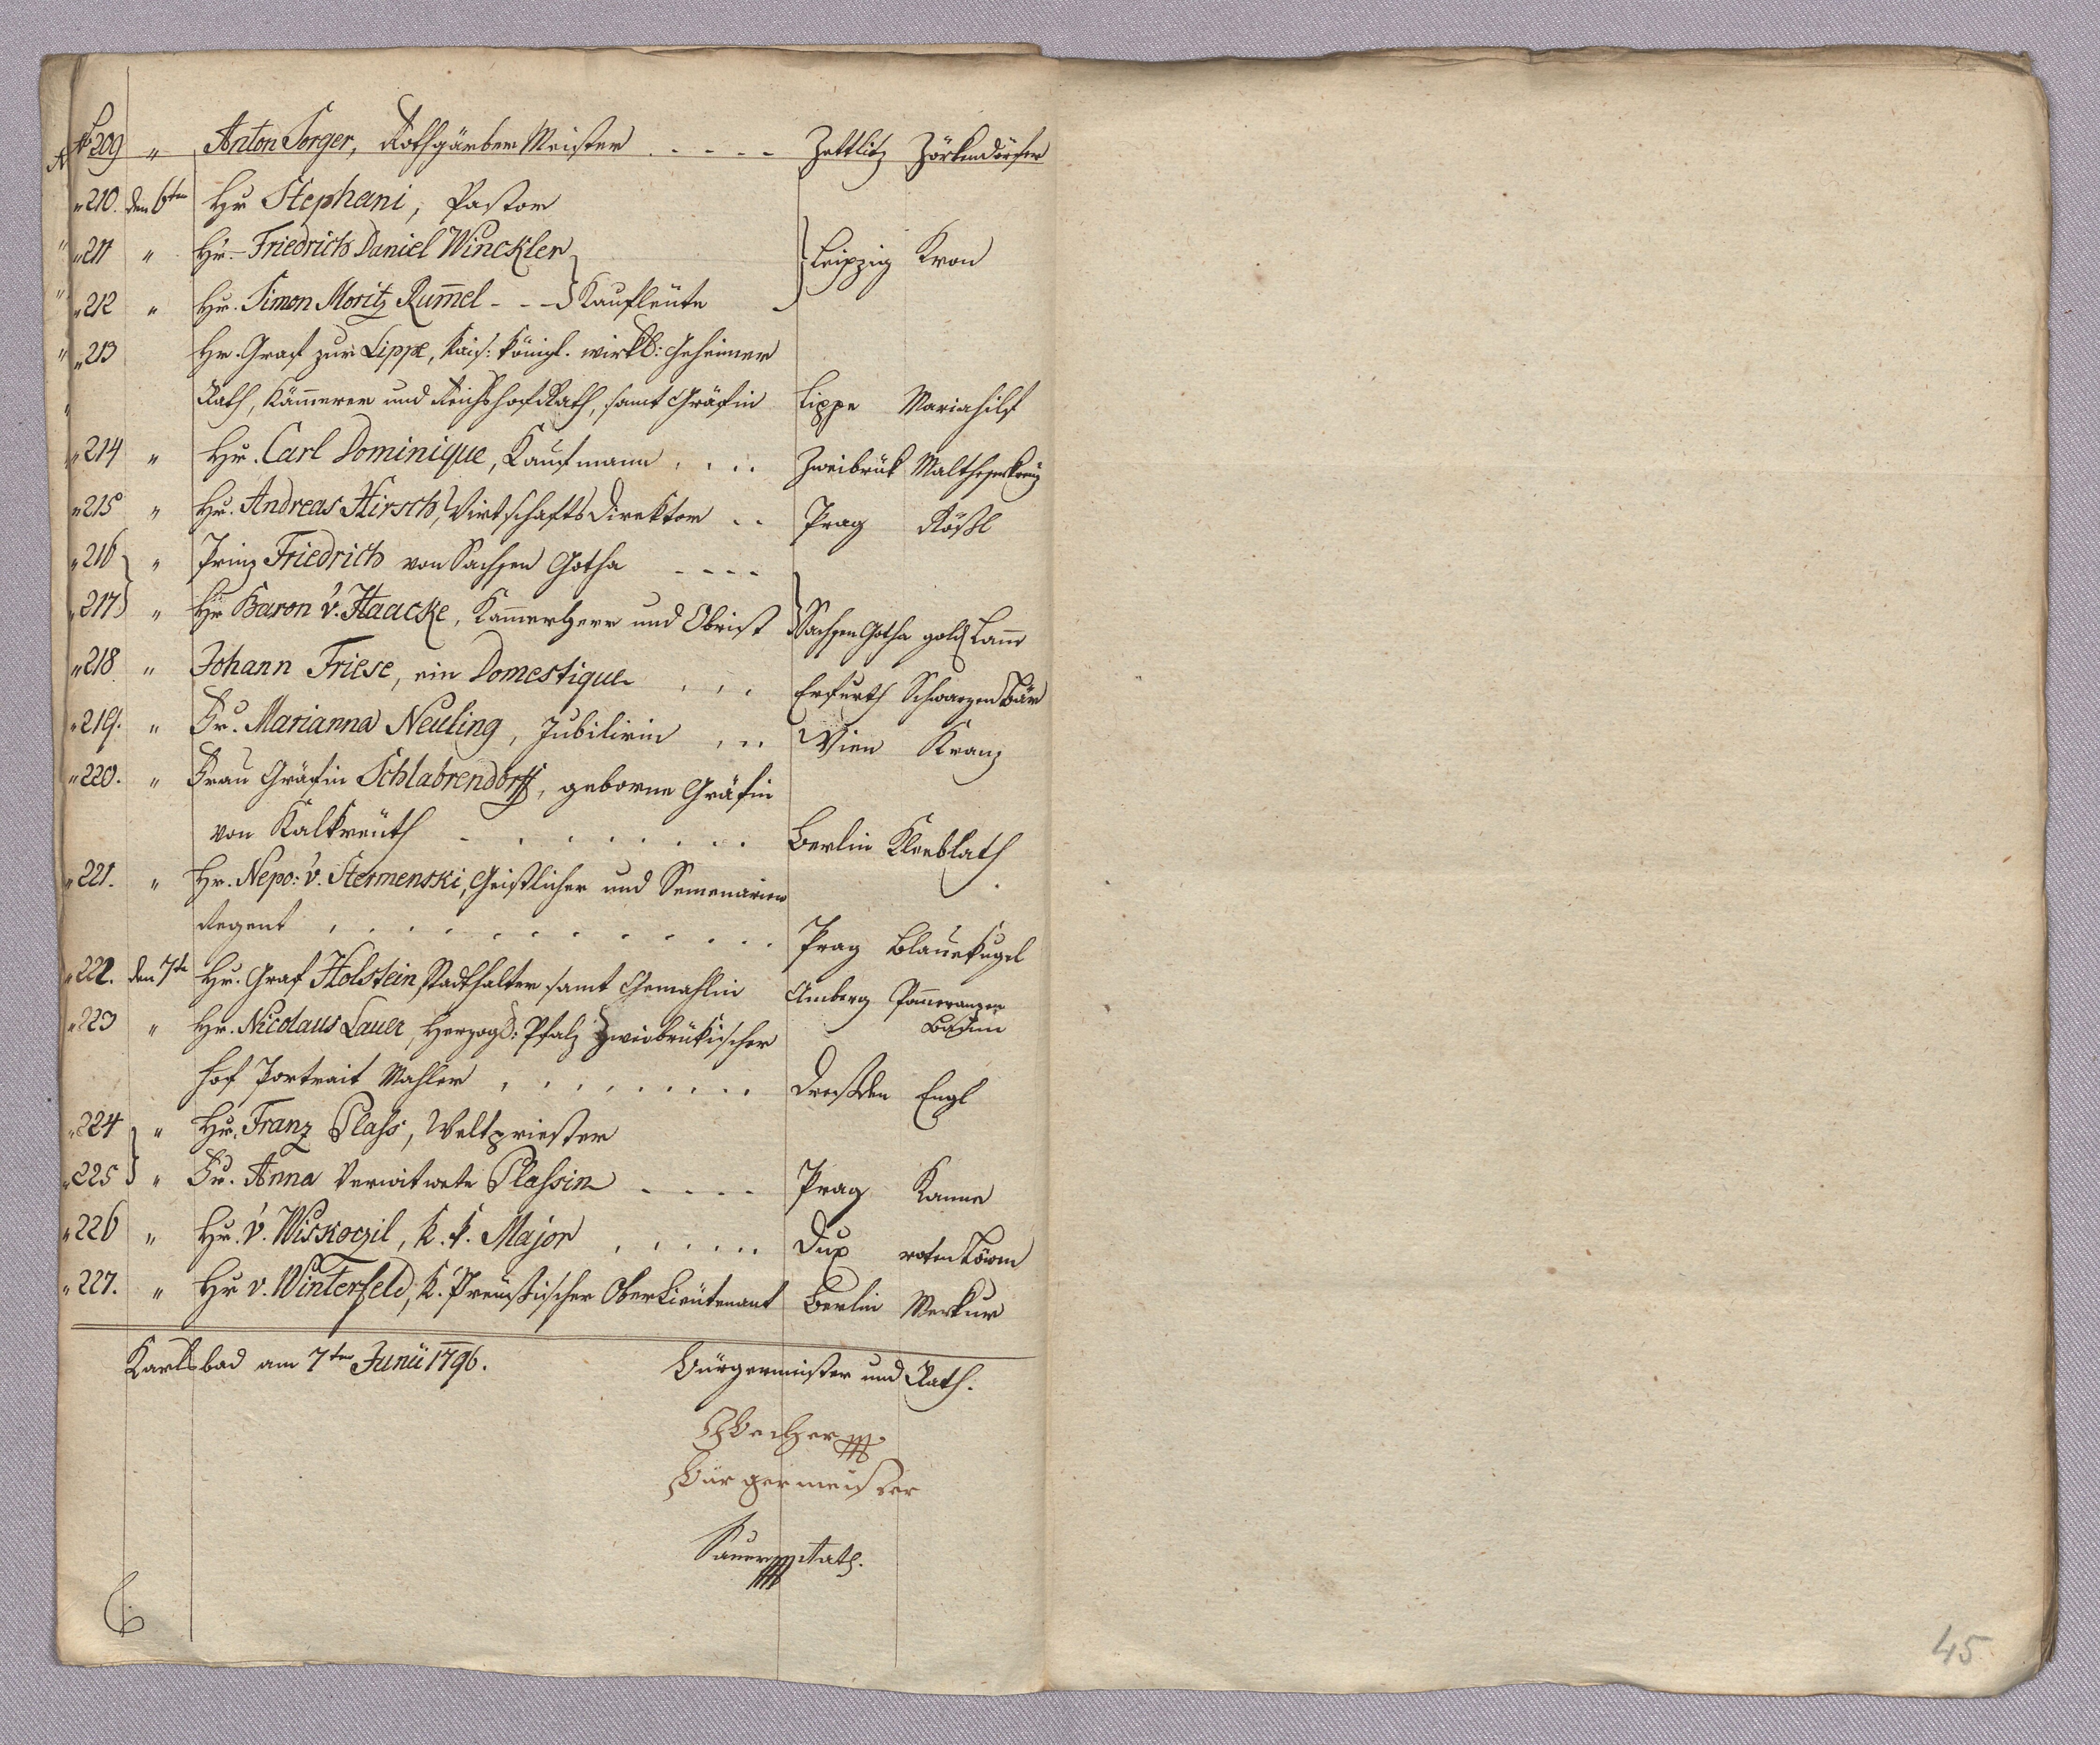 № 209 " Anton Sorger, Rothgärber Meister . . . . . Zettlitz Zörkendörfer
" 210. den 6ten Hr Stephani, Pastor
" 211 " Hr. Friedrich Daniel Winckler } Leipzig Kron
" 212 " Hr. Simon Moritz Rum̄el - - - } Kaufleute
" 213 Hr. Graf zur Lippe, Kais: königl. wirkl: Geheimer
Rath, Käm̄erer und ReichshofRath, samt Gräfin Lippe Mariahilf
" 214 " Hr. Carl Dominique, Kaufmann . . . . Zweibrük Malthesenkreuz
" 215 " Hr. Andreas Hirsch, Wirtschafts Direktor . . Prag Rößl
" 216 } " Prinz Friedrich von Sachsen Gotha - - - -
" 217 } " Hr Baron v. Haacke, Kam̄erherr und Obrist } Sachsen Gotha gold Lam̄
" 218 " Johann Friese, ein Domestique . . . Erfurth Schwarzen Bär
" 219. " Fr. Marianna Neuling, Jubilirin . . . Wien Kranz
" 220. " Frau Gräfin Schlabrendorff, geborne Gräfin
von Kalkreuth - . . . . . . . Berlin Kleeblath
" 221. " Hr. Nepo: v. Stermenski, Geistlicher und Semenarien
Regent . . . . . . . . . . . . Prag Blauekugel
" 222. den 7te Hr. Graf Holstein, Stadthalter samt Gemahlin Amberg Pom̄eranzen
Baum
" 223 " Hr. Nicolaus Lauer, Herzogl: Pfalz Zweibrükischer
Hof Portrait Mahler . . . . . . . . . Dreßden Engl
" 224 } " Hr. Franz Plass, Weltpriester
" 225 } " Fr. Anna Verwitwete Plassin - . - - Prag Kanne
" 226 " Hr. v. Wiskoczil, K. k. Major . . . . . . Dux roten Löwen
" 227. " Hr v. Winterfeld, K. Preußischer Oberlieutenant Berlin Merkur
Karlsbad am 7ten Junii 1796. Bürgermeister und Rath.
Becher
Bürgermeister
Sauer Rath.
45